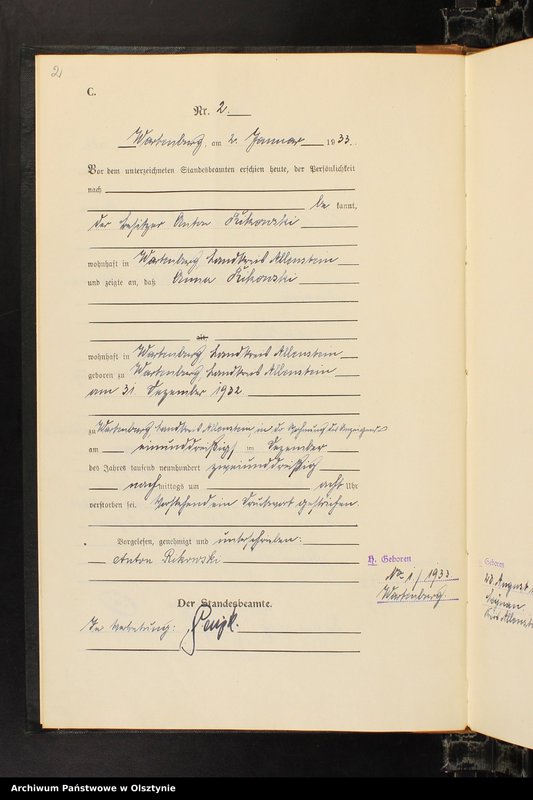 2
C.
Nr. 2.
Wartenburg, am 2. Januar 1933.
Vor dem unterzeichneten Standesbeamten erschien heute, der Persönlichkeit
nach
be kannt,
der Besitzer Anton Rikowski
wohnhaft in Wartenburg Landkreis Allenstein
und zeigte an, daß Anna Rikowski
alt,
wohnhaft in Wartenburg Landkreis Allenstein
geboren zu Wartenburg Landkreis Allenstein
am 31. Dezember 1932.
zu Wartenburg, Landkreis Allenstein, in der Wohnung des Anzeigenden
am einunddreißigsten Dezember
des Jahres tausend neunhundert zweiunddreißig
nach mittags um acht Uhr
verstorben sei. Vorstehend ein Druckwort gestrichen.
Vorgelesen, genehmigt und unterschrieben:
Anton Rikowski
H. Geboren
No 1./1933
Wartenburg.
Der Standesbeamte.
In Vertretung:
Geboren
August